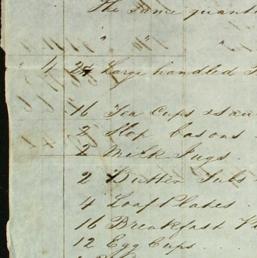 The same quanti
" "
4 24 Large handled
16 Tea Cups & Sau
2 Slop basons
2 Milk Jugs.
2 Butter Tubs
4 Loaf Plates.
16 Breakfast
12 Egg Cups